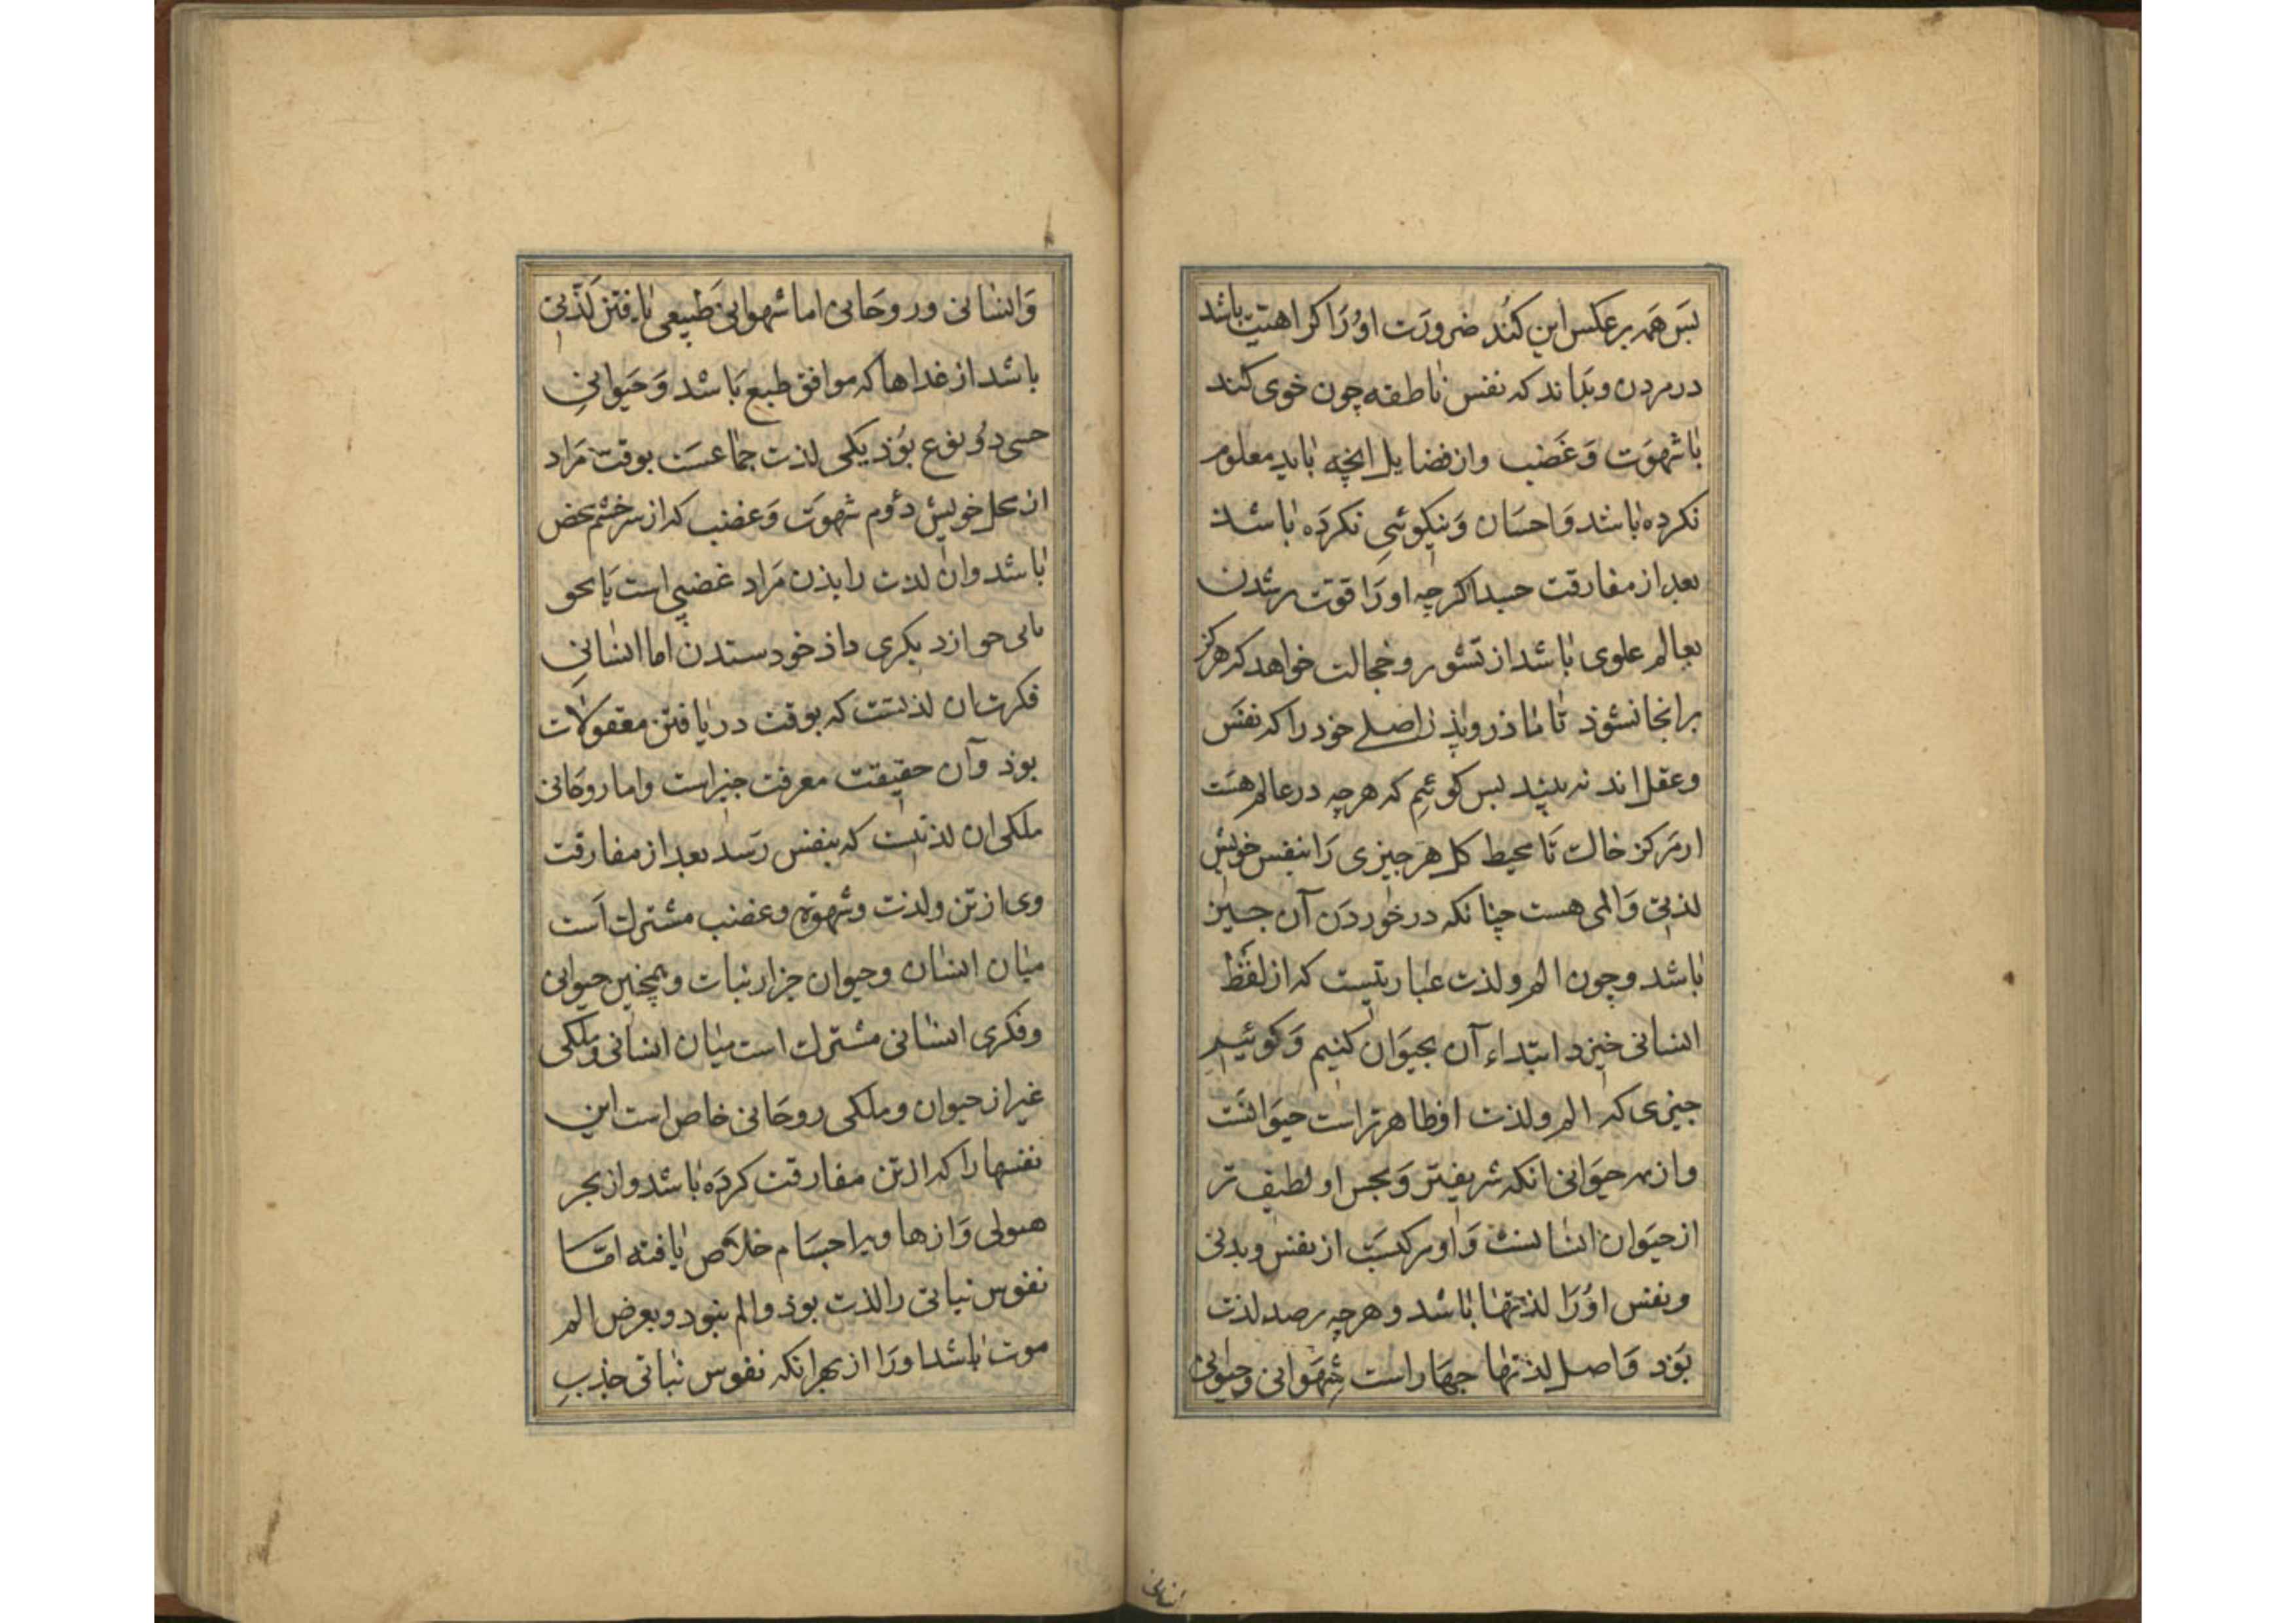 بس همه بر عکس این کند ضرورت اورا کراهیت باشد
در مردن و بداند که نفس ناطقه چون خوی کند
با شهوت و غضب و از فضایل انچه باید معلوم
نکرده باشد و احسان و نیکوئی نکرده باشد
بعد از مفارقت جسد اکرچه اورا قوت برشدن
بعالم علوی باشد از تشویر و خجالت خواهد که هرکز
برانجا نشوذ تا ماذر و پذر اصلے خود را که نفس
و عقل اند نه بیند بس کوئیم که هرچه در عالم هست
از مرکز خاک تا محیط کل هر چیزی را بنفس خویش
لذتی و المی هست چنانکه در خوردن آن چیز
باشد و چون الم و لذت عبارتیست که از لفظ
انسانی خیزد ابتداء آن بحیوان کنیم و کوئیم
چیزی که الم و لذت او ظاهرتر است حیوانست
و از هر حیوانی انکه شریفتر و بجس او لطیف تر
از حیوان انسانست و او مرکبست از نفس و بدنی
و نفس اورا لذتها باشد و هرچه برصد لذت
بوذ و اصل لذتها چهار است شهوانی و حیوانی
انسانی
و انسانی و روحانی اما شهوانی طبیعی یافتن لذتی
باشد از غداها که موافق طبع باشد و حیوانی
حسی دو نوع بوذ یکی لذت جماعست بوقت مراد
از محل خویش دوم شهوت و غضب که از سر خشم محض
باشد و ان لذت راندن مراد غضبی است یا بحق
یا بی حق از دیکری داذ خود ستدن اما انسانی
فکرت ان لذتست که بوقت دریافتن معقولات
بوذ و آن حقیقت معرفت چیز است و اما روحانی
ملکی ان لذتست که بنفس رسد بعد از مفارقت
وی از تن و لذت و شهوة و غضب مشترک است
میان انسان و حیوان جز از نبات و همچنین حیوانی
و فکری انسانی مشترک است میان انسانی و ملکی
غیر از حیوان و ملکی روحانی خاص است این
نفسها را که از تن مفارقت کرده باشد و از بحر
هیولی و از هاویه اجسام خلاص یافته امّا
نفوس نباتی را لذت بوذ و الم نبود و بعرض الم
موت باشد اورا از بهر انکه نفوس نباتی جذب